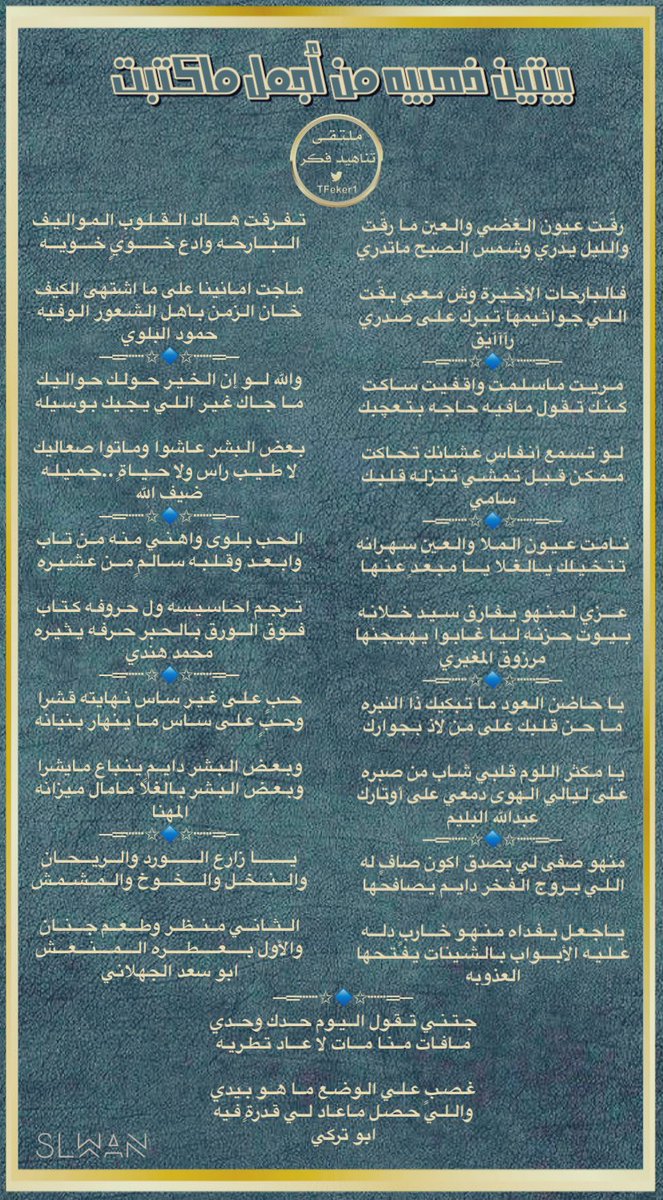 بيتين ذهبيه من أجمل ماكتبت
ملتقى
تناهيد فكر
TFeker1
رقّت عيون الغضي والعين ما رقّت
والليل يدري وشمس الصبح ماتدري
فالبارحات الأخيرة وش معي بقّت
اللي جواثيمها تبرك على صدري
رااايق
مريت ماسلمت واقفيت ساكت
كنك تقول مافيه حاجه بتعجبك
لو تسمع انفاس عشانك تحاكت
ممكن قبل تمشي تنزله قلبك
سامي
نامت عيون الملا والعين سهرانه
تتخيلك يالغلا يا مبعدٍ عنها
عزي لمنهو يفارق سيد خلانه
بيوت حزنه ليا غابوا يهيجنها
مرزوق المغيري
يا حاضن العود ما تبكيك ذا النبره
ما حن قلبك على من لاذ بجوارك
يا مكثر اللوم قلبي شاب من صبره
على ليالي الهوى دمعي على أوتارك
عبدالله البليم
منهو صفى لي بصدق اكون صافٍ له
اللي بروج الفخر دايم يصافحها
ياجعل يفداه منهو خاربٍ دله
عليه الأبواب بالشينات يفتحها
العذوبه
تفرقت هاك القلوب المواليف
البارحه وادع خويٍ خويه
ماجت امانينا على ما اشتهى الكيف
خان الزمن باهل الشعور الوفيه
حمود البلوي
والله لو إن الخير حولك حواليك
ما جاك غير اللي يجيك بوسيله
بعض البشر عاشوا وماتوا صعاليك
لا طيب راس ولا حياةٍ ..جميله
ضيف الله
الحب بلوى واهنّي منه من تاب
وابعد وقلبه سالمٍ من عشيره
ترجم احاسيسه ول حروفه كتاب
فوق الورق بالحبر حرفه يثيره
محمد هندي
حب على غير ساس نهايته قشرا
وحبٍ على ساس ما ينهار بنيانه
وبعض البشر دايم ينباع مايشرا
وبعض البشر بالغلا مامال ميزانه
المهنا
يا زارع الورد والريحان
والنخل والخوخ والمشمش
الثاني منظر وطعم جنان
والأول بعطره المنعش
ابو سعد الجهلاني
جتني تقول اليوم حدك وحدي
مافات منا مات لا عاد تطريه
غصبٍ علي الوضع ما هو بيدي
واللي حصل ماعاد لي قدرةٍ فيه
ابو تركي
SLWAN